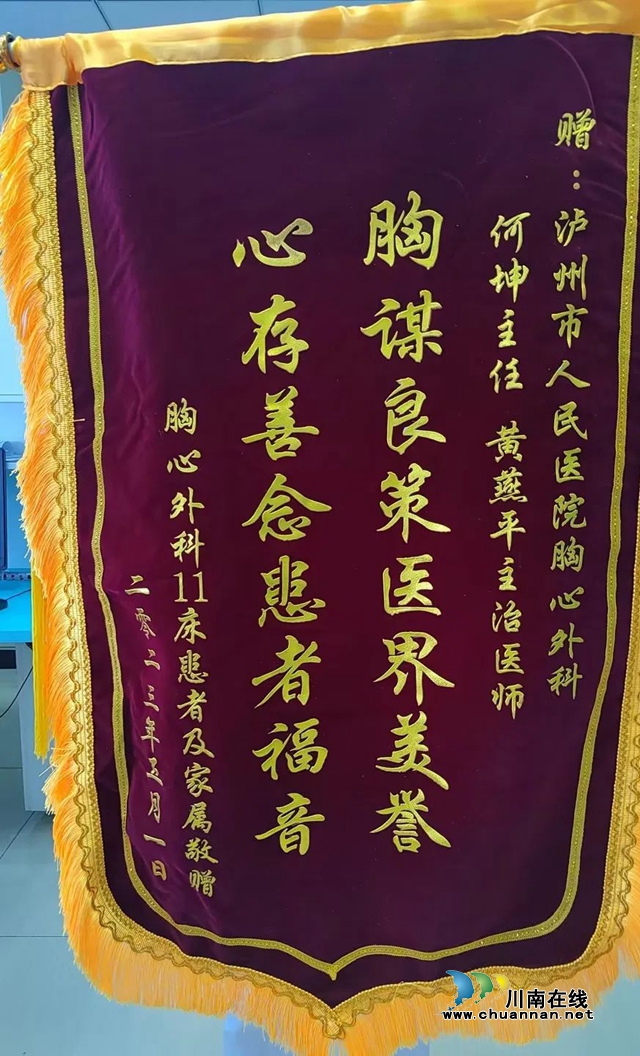 赠：泸州市人民医院胸心外科
何坤主任 黄燕平主治医师
胸谋良策医界美誉
心存善念患者福音
胸心外科11床患者及家属敬赠
二零二三年五月一日
川南在线
www.chuannan.net